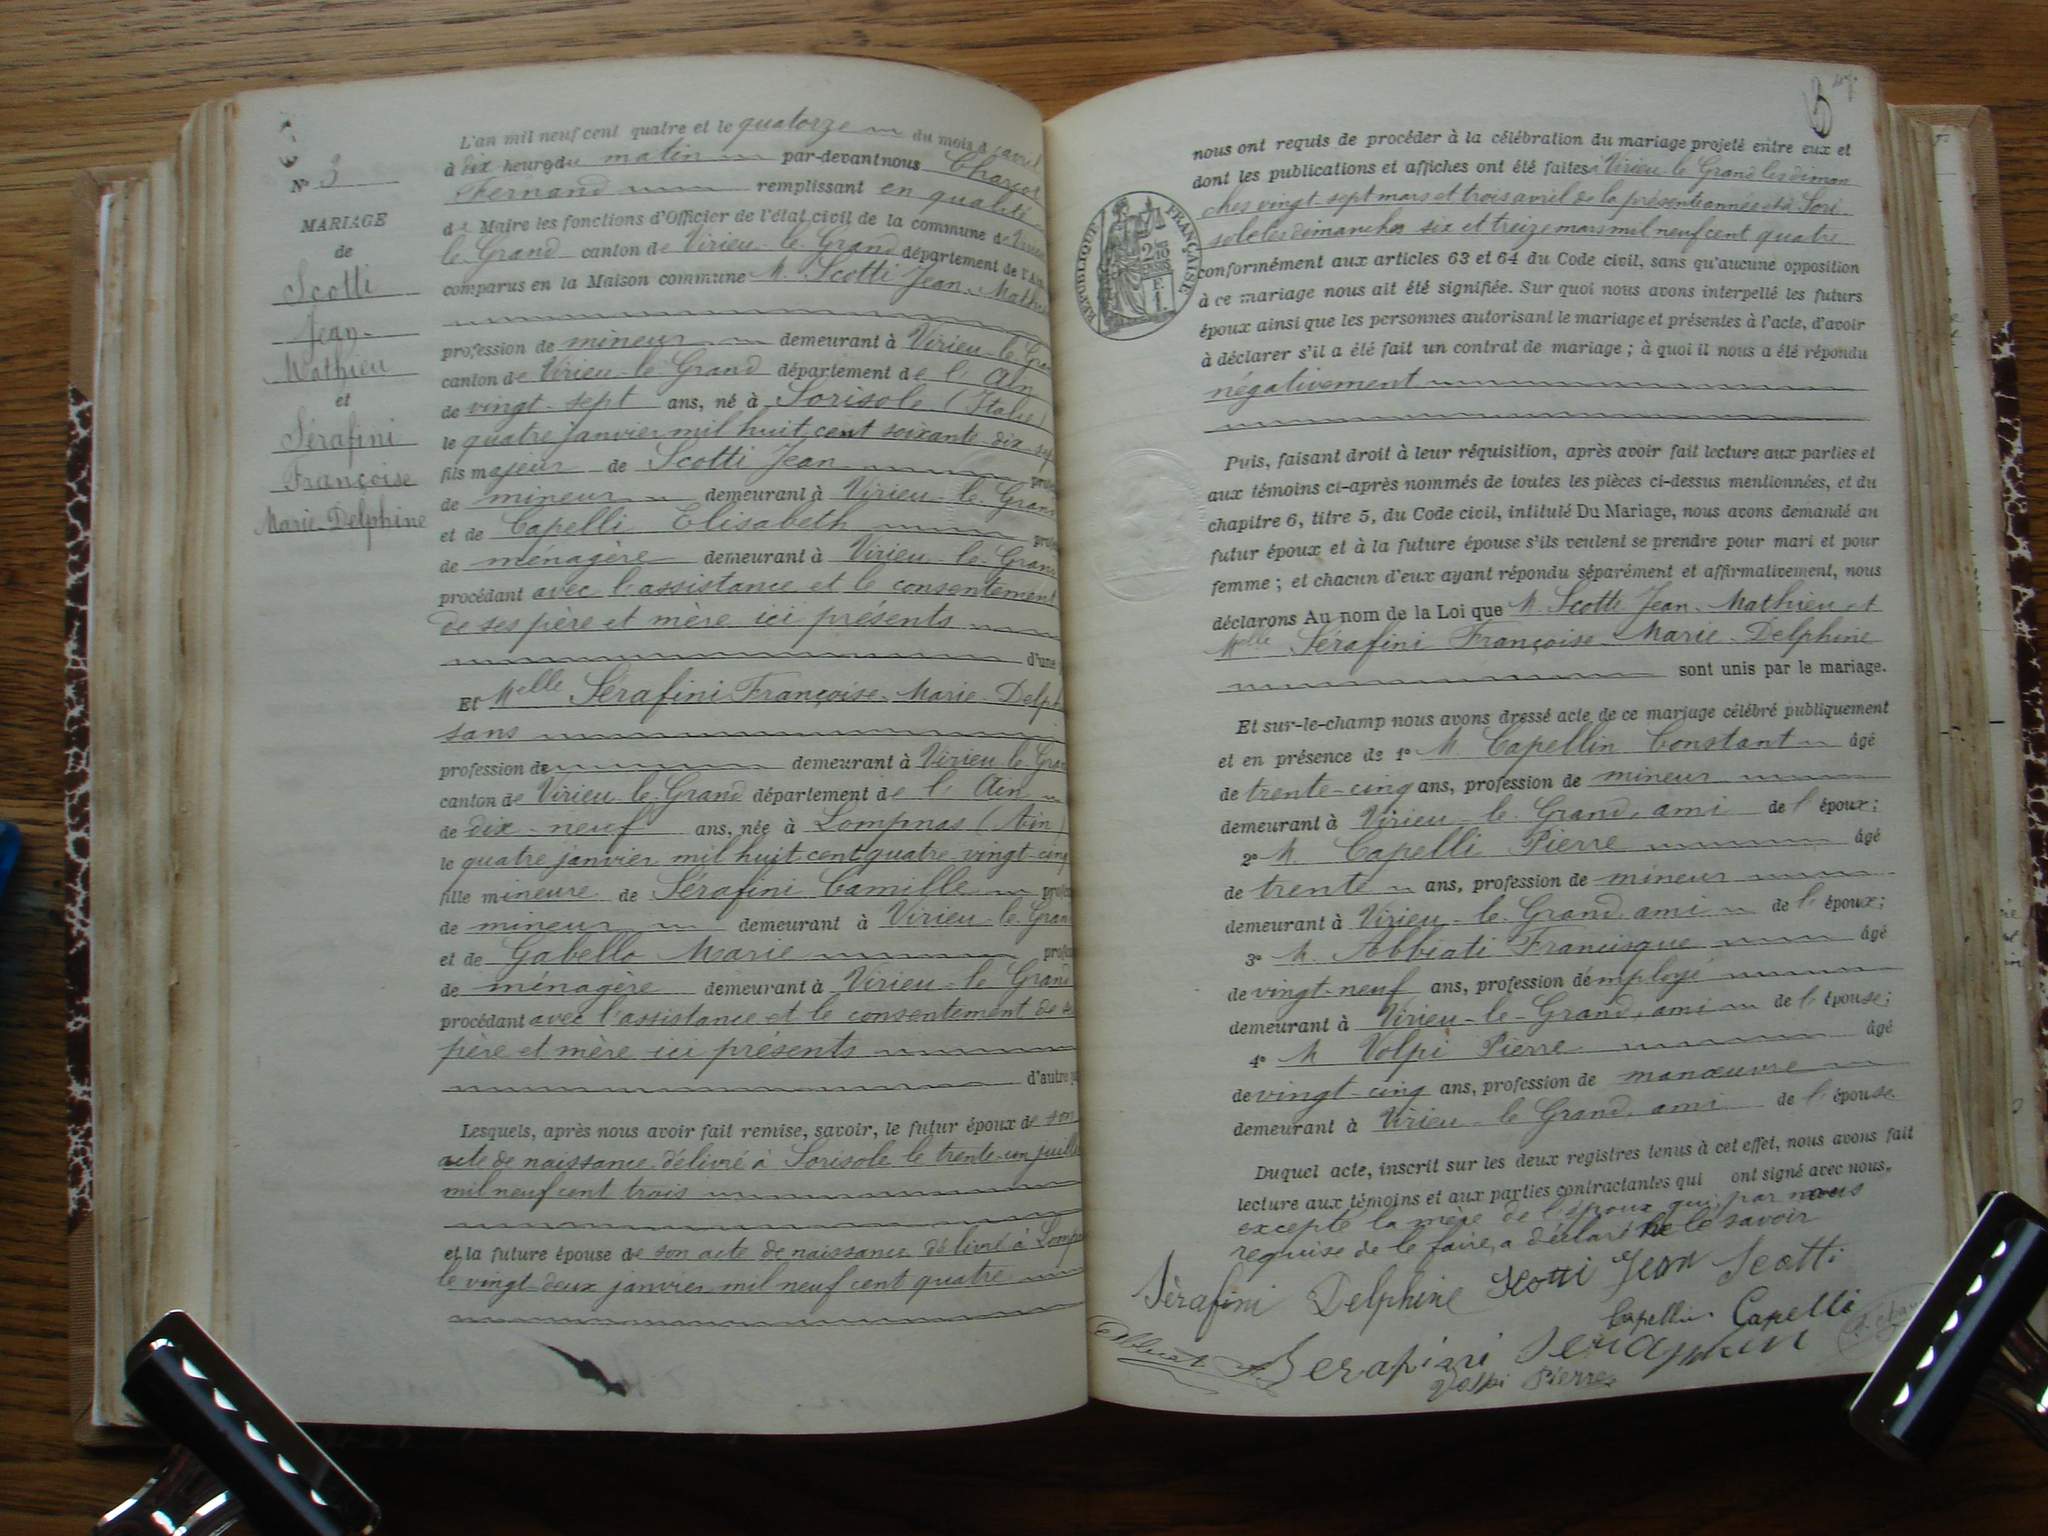 N° 3
MARIAGE
de
Scotti
Jean-
Mathieu
et
Sérafini
Françoise
Marie-Delphine
L'an mil neuf cent quatre et le quatorze du mois d'avril
à dix heures du matin par-devant nous
Fernand remplissant en qualité
de Maire les fonctions d'Officier de l'état civil de la commune de Virieu
le Grand canton de Virieu-le-Grand département de l'Ain
comparus en la Maison commune M. Scotti Jean-Mathieu
profession de mineur demeurant à Virieu-le-Gran
canton de Virieu-le-Grand département de l'Ain
de vingt-sept ans, né à Sorisole (Italie)
le quatre janvier mil huit cent soixante-dix-sept
fils majeur de Scotti Jean profes
de mineur demeurant à Virieu-le-Gran
et de Capelli Elisabeth profes
de ménagère demeurant à Virieu-le-Gran
procédant avec l'assistance et le consentement
de ses père et mère ici présents
d'une
Et Melle Sérafini Françoise-Marie-Delph
sans
profession de demeurant à Virieu-le-Gran
canton de Virieu-le-Grand département de l'Ain
de dix-neuf ans, née à Lompnas (Ain)
le quatre janvier mil huit cent quatre-vingt-cinq
fille mineure de Sérafini Camille profes
de mineur demeurant à Virieu-le-Gran
et de Gabello Marie profes
de ménagère demeurant à Virieu-le-Grand
procédant avec l'assistance et le consentement de ses
père et mère ici présents
d'autre pa
Lesquels, après nous avoir fait remise, savoir, le futur époux de son
acte de naissance délivré à Sorisole le trente-un juillet
mil neuf cent trois
et la future épouse de son acte de naissance délivré à Lomp
le vingt-deux janvier mil neuf cent quatre
47
nous ont requis de procéder à la célébration du mariage projeté entre eux et
dont les publications et affiches ont été faites à Virieu-le-Grand les diman
ches vingt-sept mars et trois avril de la présente année et à Sori-
sole les dimanches six et treize mars mil neuf cent quatre
conformément aux articles 63 et 64 du Code civil, sans qu'aucune opposition
à ce mariage nous ait été signifiée. Sur quoi nous avons interpellé les futurs
époux ainsi que les personnes autorisant le mariage et présentes à l'acte, d'avoir
à déclarer s'il a été fait un contrat de mariage ; à quoi il nous a été répondu
négativement
RÉPUBLIQUE FRANÇAISE
2/10 EN SUS
1 F.
Puis, faisant droit à leur réquisition, après avoir fait lecture aux parties et
aux témoins ci-après nommés de toutes les pièces ci-dessus mentionnées, et du
chapitre 6, titre 5, du Code civil, intitulé Du Mariage, nous avons demandé au
futur époux et à la future épouse s'ils veulent se prendre pour mari et pour
femme ; et chacun d'eux ayant répondu séparément et affirmativement, nous
déclarons Au nom de la Loi que M. Scotti Jean-Mathieu et
Melle Sérafini Françoise-Marie-Delphine
sont unis par le mariage.
Et sur-le-champ nous avons dressé acte de ce mariage célébré publiquement
et en présence de 1° M. Capellin Constant âgé
de trente-cinq ans, profession de mineur
demeurant à Virieu-le-Grand, ami de l'époux ;
2° M. Capelli Pierre âgé
de trente ans, profession de mineur
demeurant à Virieu-le-Grand ami de l'époux ;
3° M. Abbiati Francisque âgé
de vingt-neuf ans, profession d'employé
demeurant à Virieu-le-Grand, ami de l'épouse ;
4° M Volpi Pierre âgé
de vingt-cinq ans, profession de manœuvre
demeurant à Virieu-le-Grand, ami de l'épouse
Duquel acte, inscrit sur les deux registres tenus à cet effet, nous avons fait
lecture aux témoins et aux parties contractantes qui ont signé avec nous,
excepté la mère de l'époux qui, par nous
requise de le faire, a déclaré ne le savoir
Sèrafini Delphine Scotti Jean Scotti
Capellin Capelli
Serafini
Volpi Pierre